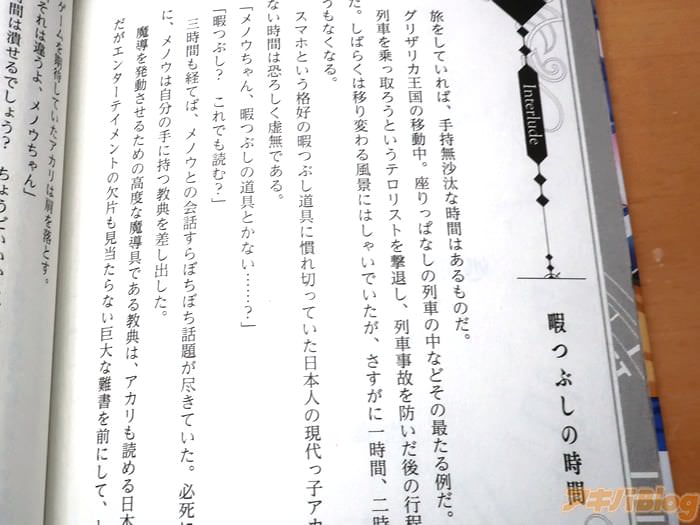 Interlude
暇つぶしの時間
旅をしていれば、手持無沙汰な時間はあるものだ。
グリザリカ王国の移動中。座りっぱなしの列車の中などその最たる例だ。
列車を乗っ取ろうというテロリストを撃退し、列車事故を防いだ後の行程
だ。しばらくは移り変わる風景にはしゃいでいたが、さすがに一時間、二時
うもなくなる。
スマホという格好の暇つぶし道具に慣れ切っていた日本人の現代っ子アカ
ない時間は恐ろしく虚無である。
「メノウちゃん、暇つぶしの道具とかない……？」
「暇つぶし？　これでも読む？」
三時間も経てば、メノウとの会話すらぼちぼち話題が尽きていた。必死に
に、メノウは自分の手に持つ教典を差し出した。
魔導を発動させるための高度な魔導具である教典は、アカリも読める日本
だがエンターテイメントの欠片も見当たらない巨大な難書を前にして、
ゲームを期待していたアカリは肩を落とす。
それは違うよ、メノウちゃん」
間は潰せるでしょう？　ちょうどいい
アキバBlog